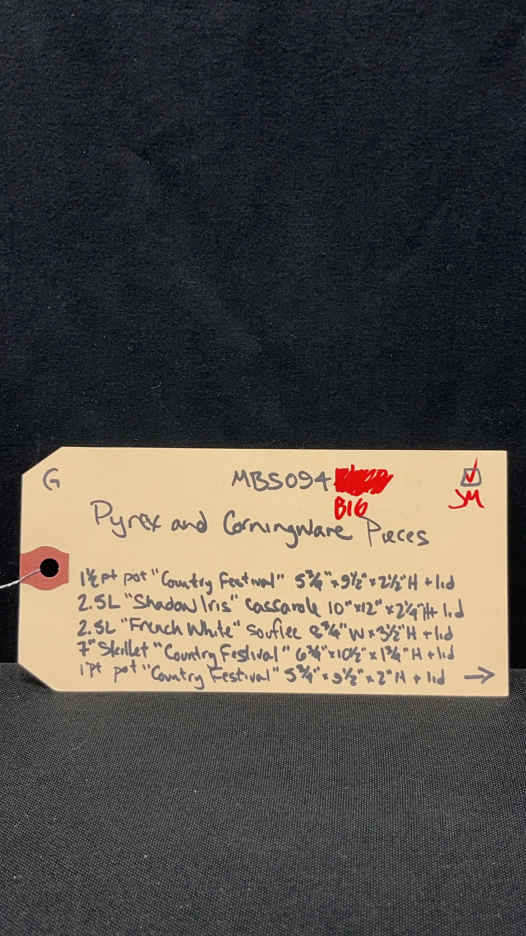 G
MBS094
B16
JM
Pyrex and Corningware Pieces
1½ pt pot "Country Festival" 5¾" x 9½" x 2½" H + lid
2.5L "Shadow Iris" casserole 10" x 12" x 2¼" H + lid
2.5L "French White" soufflee 8¾" W x 3½" H + lid
7" Skillet "Country Festival" 6¾" x 10½" x 1¾" H + lid
1 pt pot "Country Festival" 5¾" x 9½" x 2" H + lid →